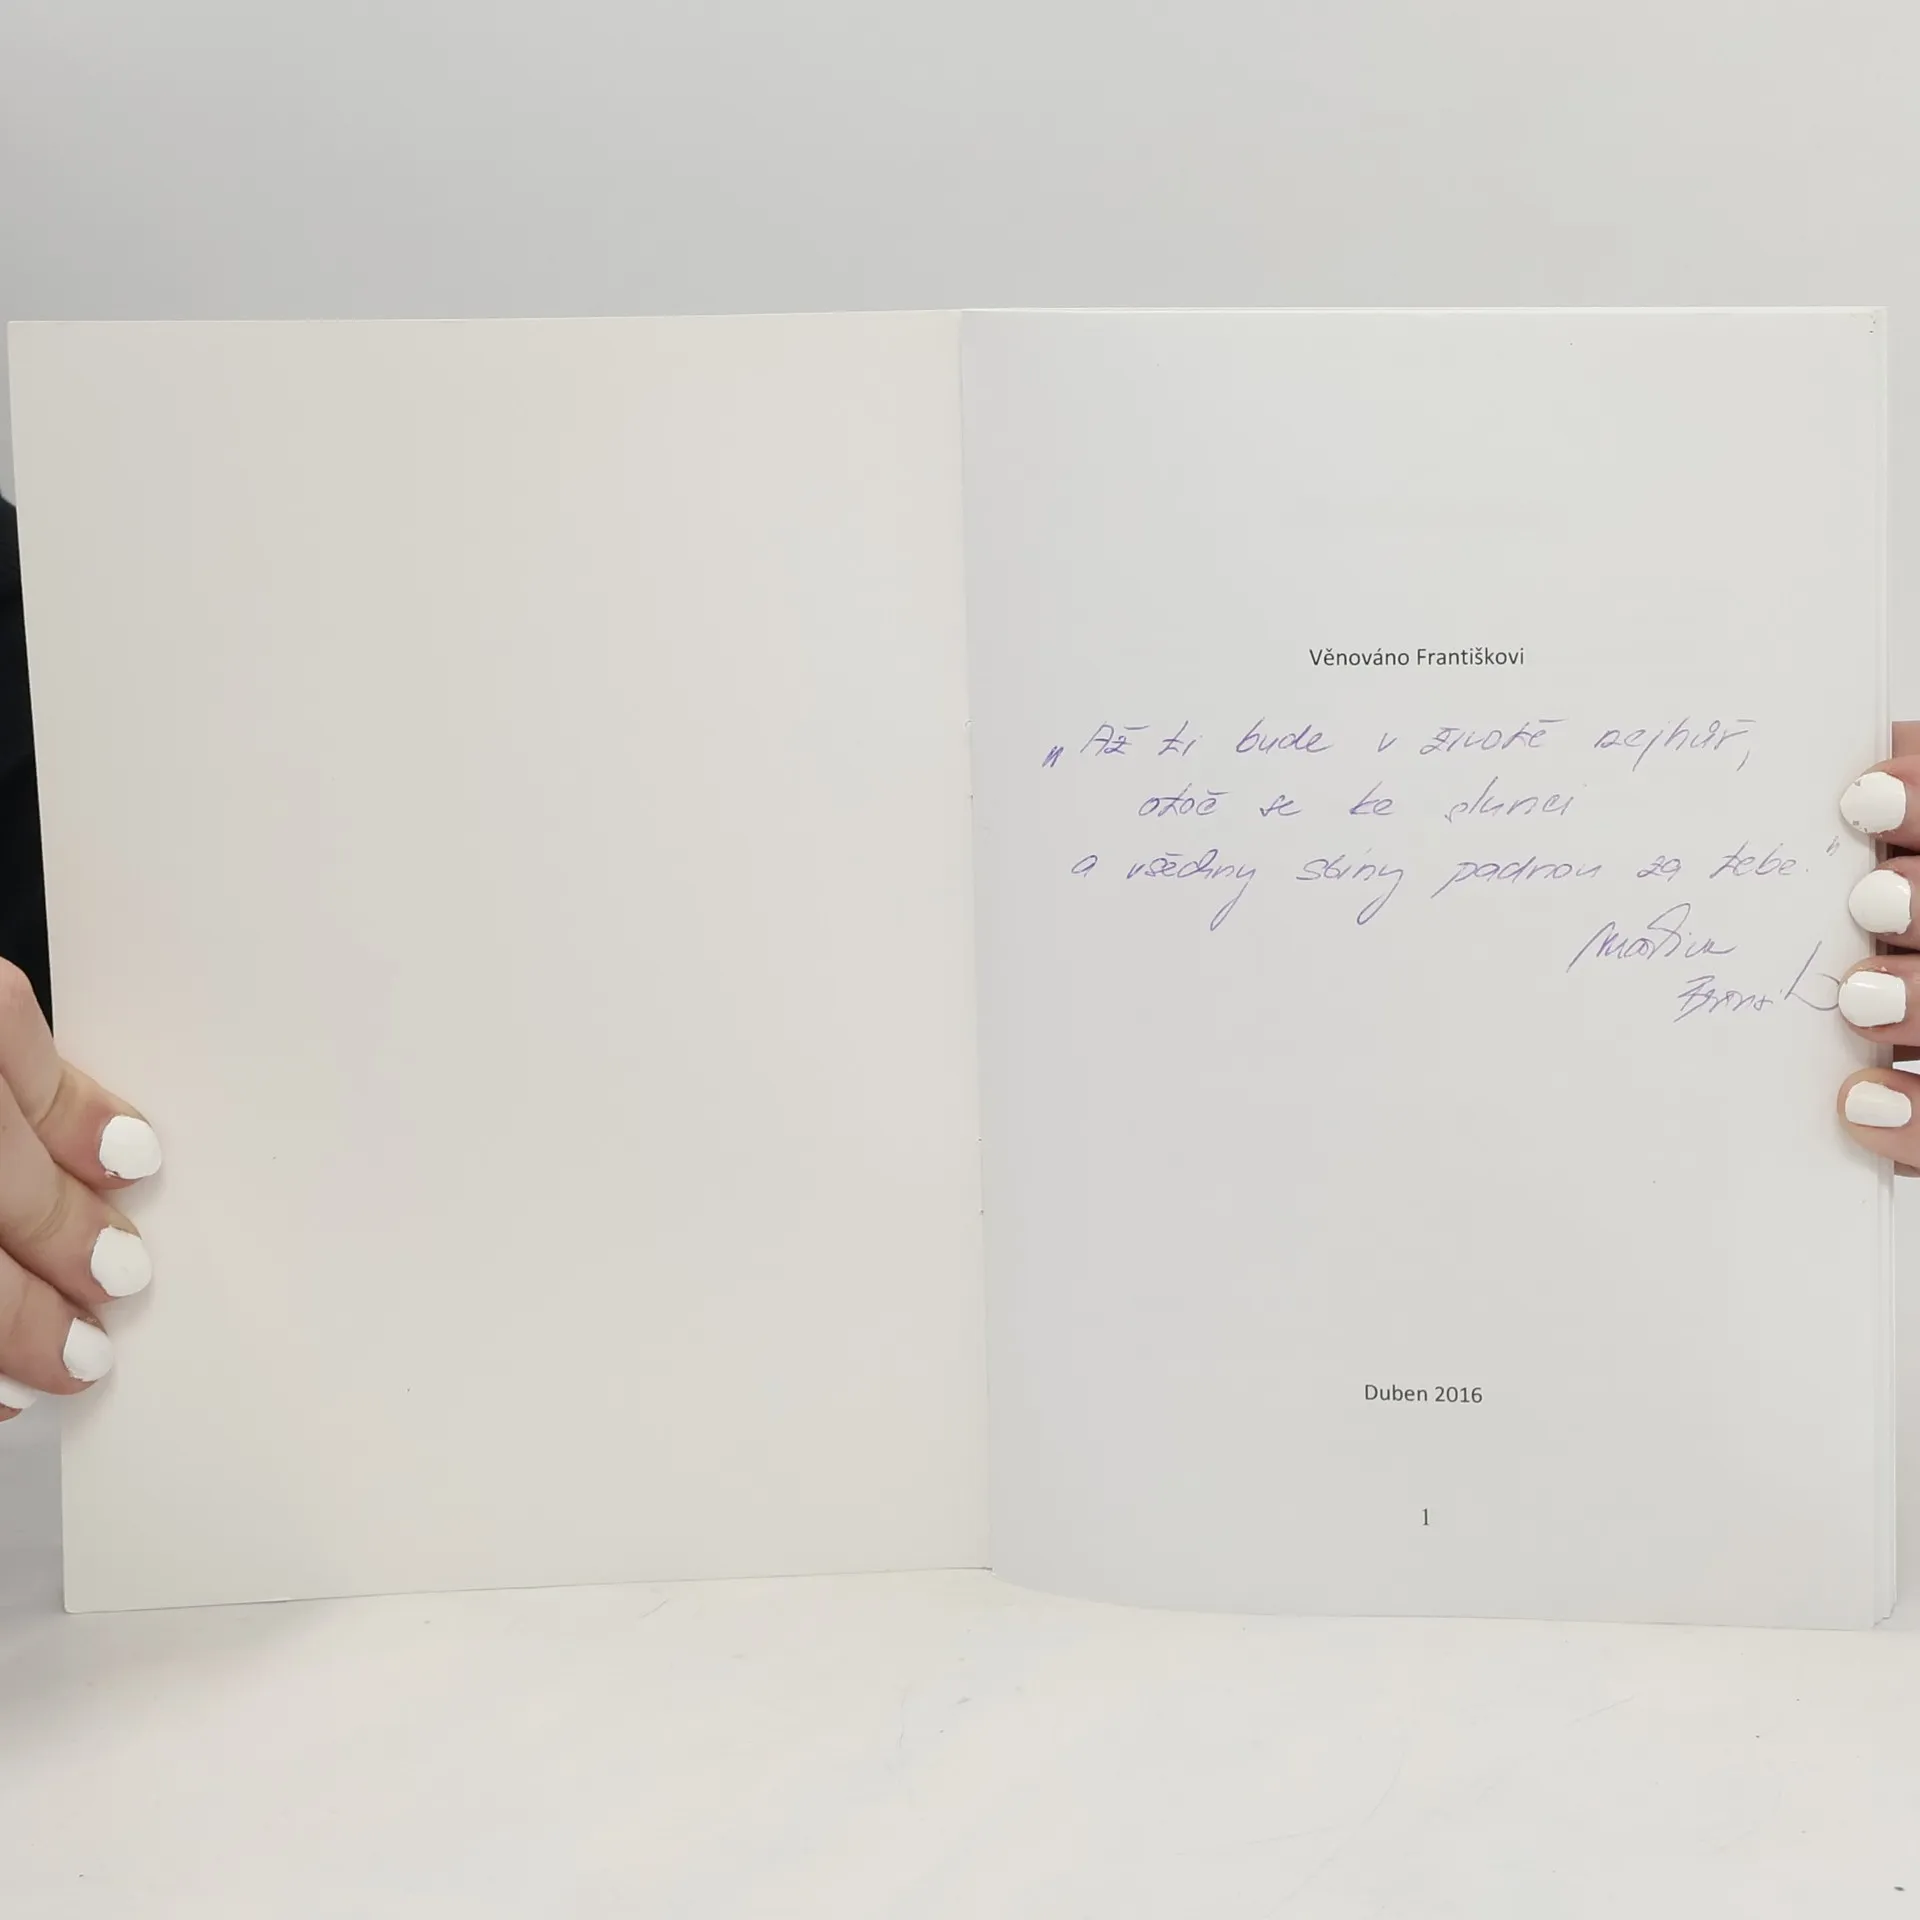 Věnováno Františkovi
„Až ti bude v životě nejhůř,
otoč se ke slunci
a všechny stíny padnou za tebe."
Duben 2016
1